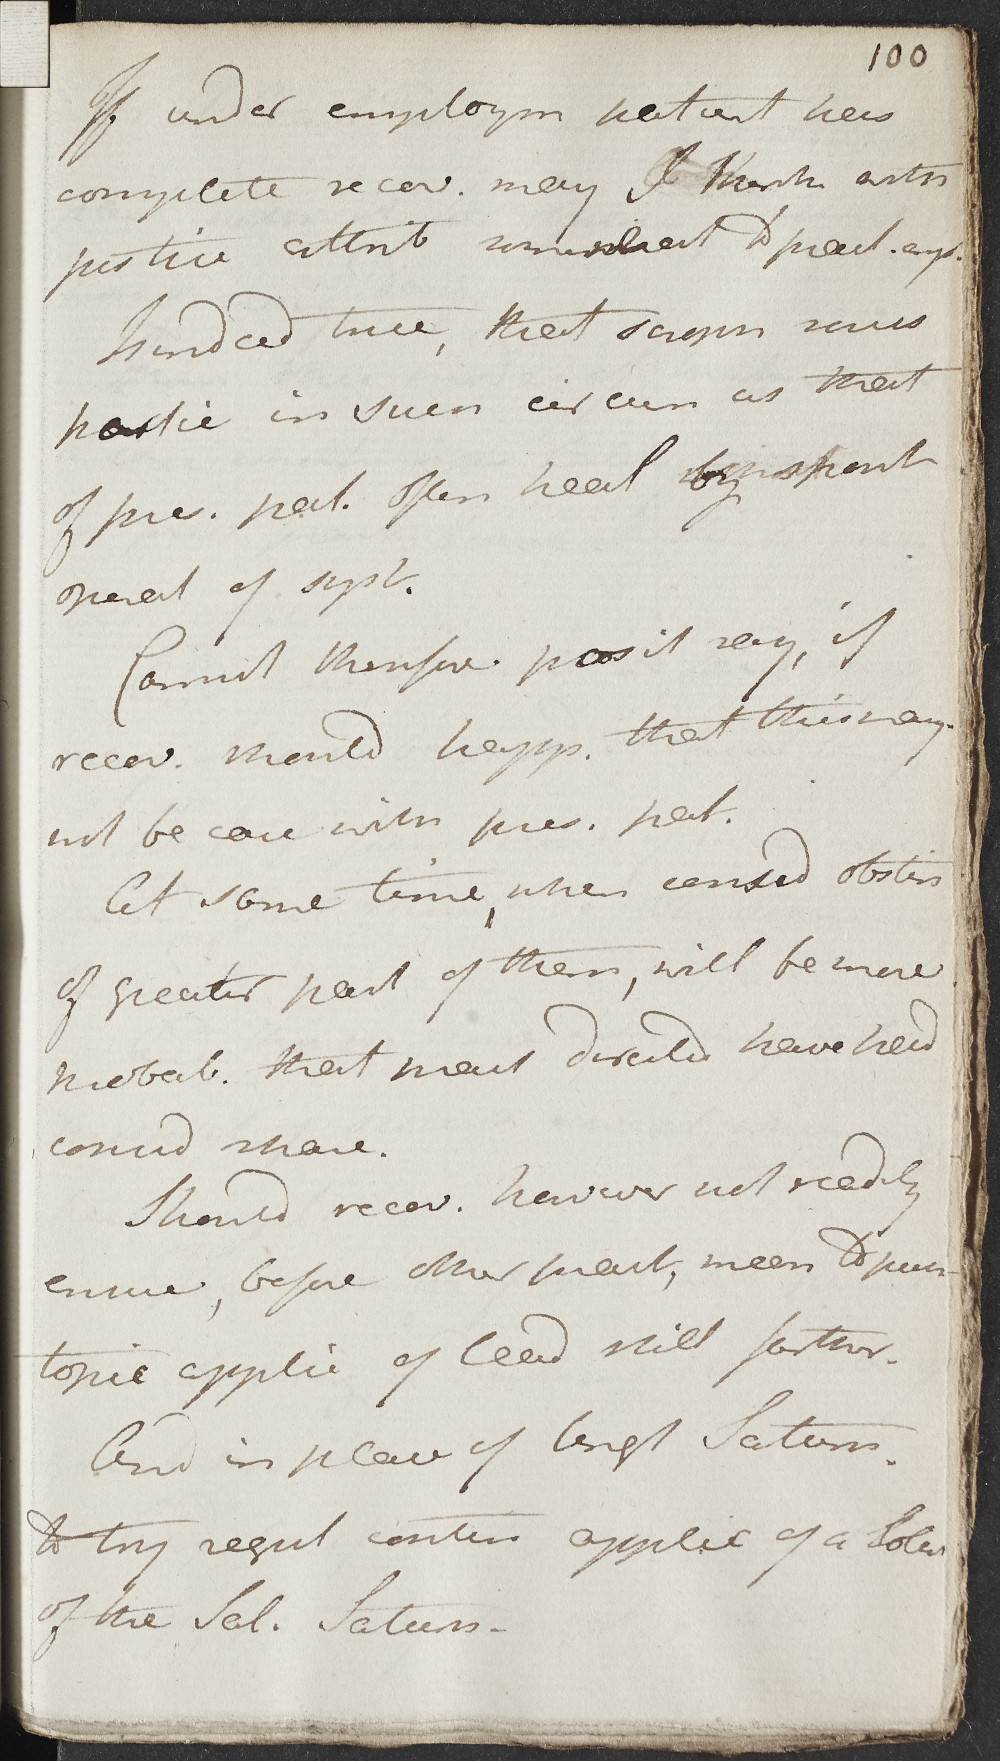 100
If under employm patient has
complete recov. may I think with
justice attrib somewhat to pract. emp.
Indeed true, that somn sores
partic in such circum as that
of pres. pat. often heal by spont
operat of syst.
Cannot therefore posit say, if
recov. should happ. that this may
not be case with pres. pat.
At same time, when consid obstin
of greater part of them, will be more
probab. that pract directed have had
consid share.
Should recov. however not readily
ensue, before other pract, mean to push
topic applic of lead still farther.
And in place of Ungt Saturn.
to try regul contin applic of a Solut
of the Sal. Saturn.